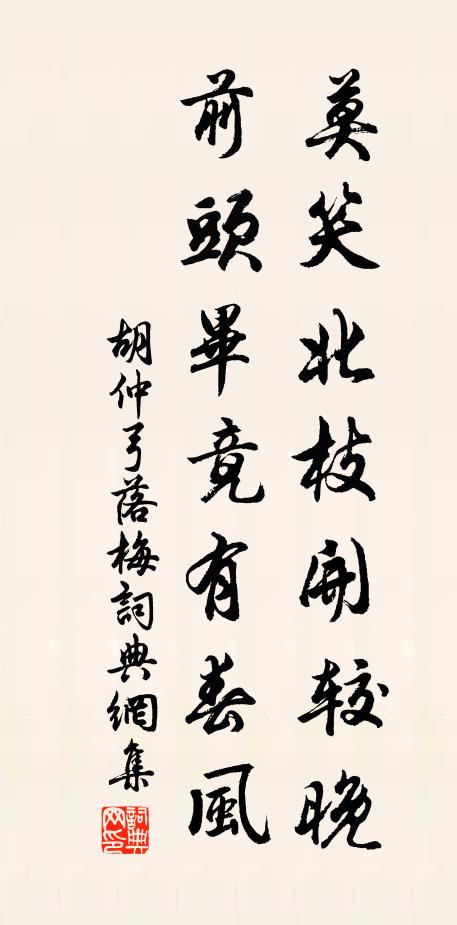 莫笑北枝開較晚
前頭畢竟有春風
胡仲弓落梅詞典網集
詞典網印